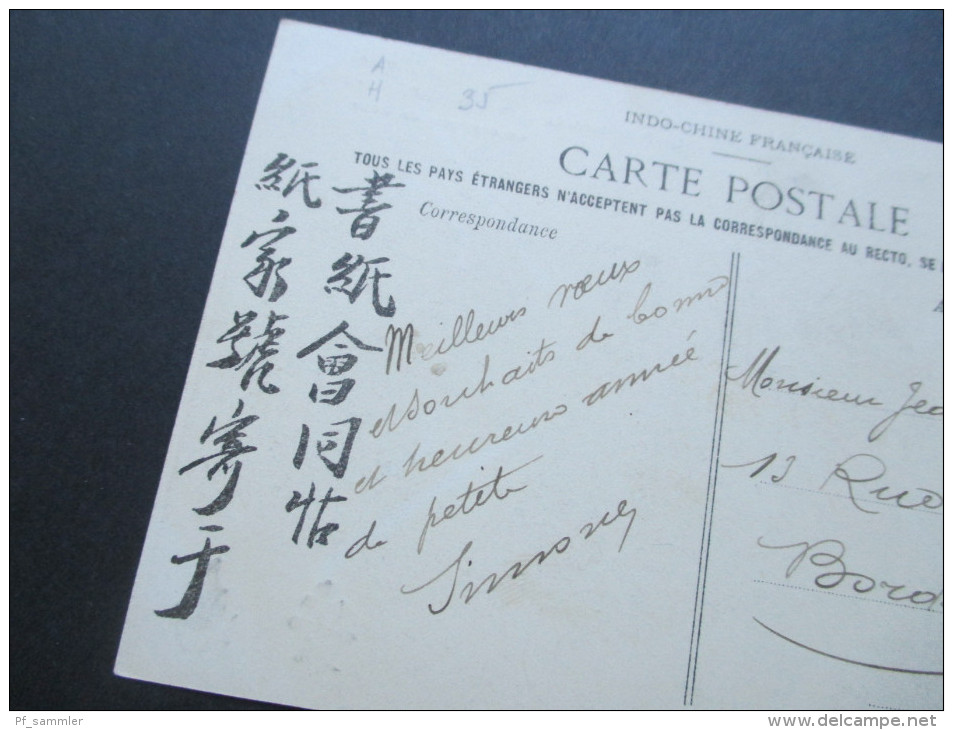 A
H
35
INDO-CHINE FRANÇAISE
CARTE POSTALE
TOUS LES PAYS ÉTRANGERS N'ACCEPTENT PAS LA CORRESPONDANCE AU RECTO. SE
Correspondance
書紙會同帖
紙家號寄于
Meilleurs vœux
et souhaits de bonne
et heureuse année
de petite
Simone
Monsieur Jea
13 Rue
Bord
Pf_sammler
www.delcampe.net